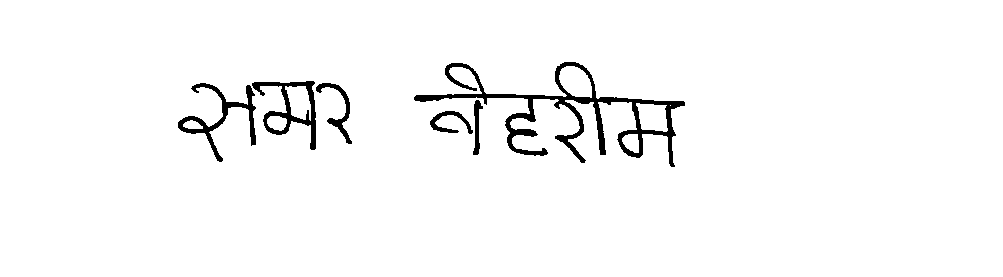 समर बेहरीम